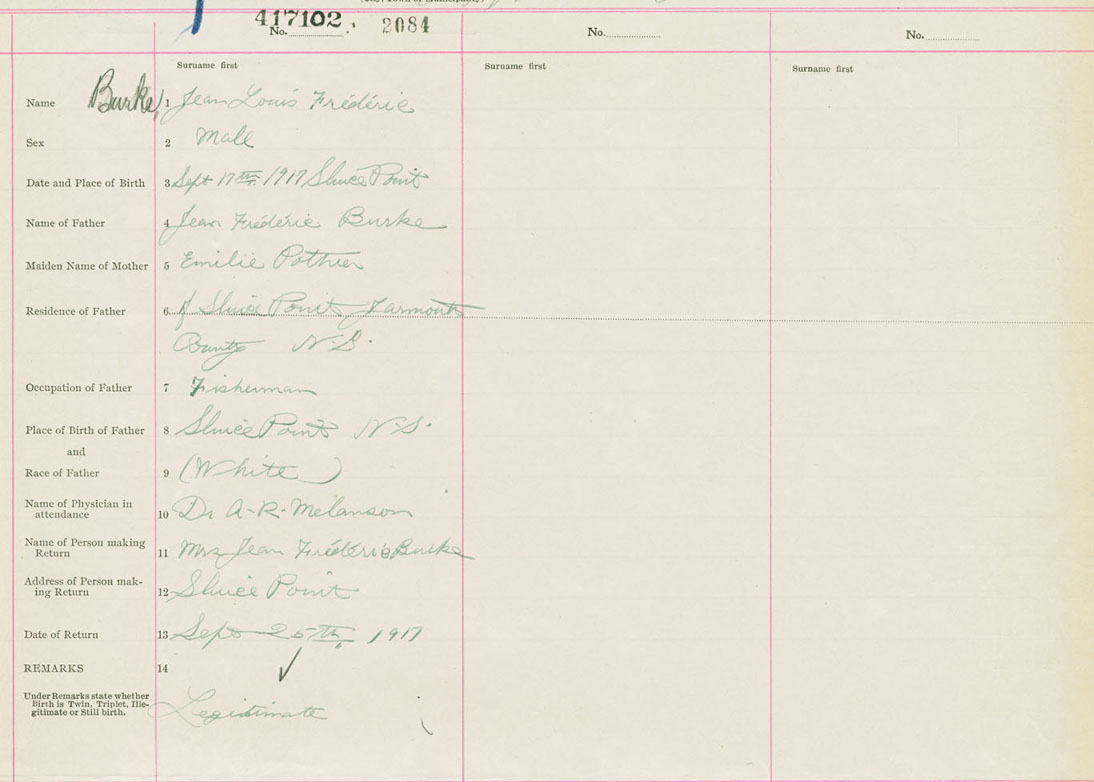 417102. 2084
No. No. No.
Surname first Surname first Surname first
Name Burke, 1 Jean Louis Frédéric
Sex 2 Male
Date and Place of Birth 3 Sept 17th 1917 Sluice Point
Name of Father 4 Jean Frédéric Burke
Maiden Name of Mother 5 Emilie Pothier
Residence of Father 6 of Sluice Point Yarmouth
County N.S.
Occupation of Father 7 Fisherman
Place of Birth of Father 8 Sluice Point N.S.
and
Race of Father 9 (White)
Name of Physician in
attendance 10 Dr A-R. Melanson
Name of Person making
Return 11 Mrs Jean Frédéric Burke
Address of Person mak-
ing Return 12 Sluice Point
Date of Return 13 Sept 25th, 1917
REMARKS 14
Under Remarks state whether
Birth is Twin, Triplet, Ille-
gitimate or Still birth. Legitimate